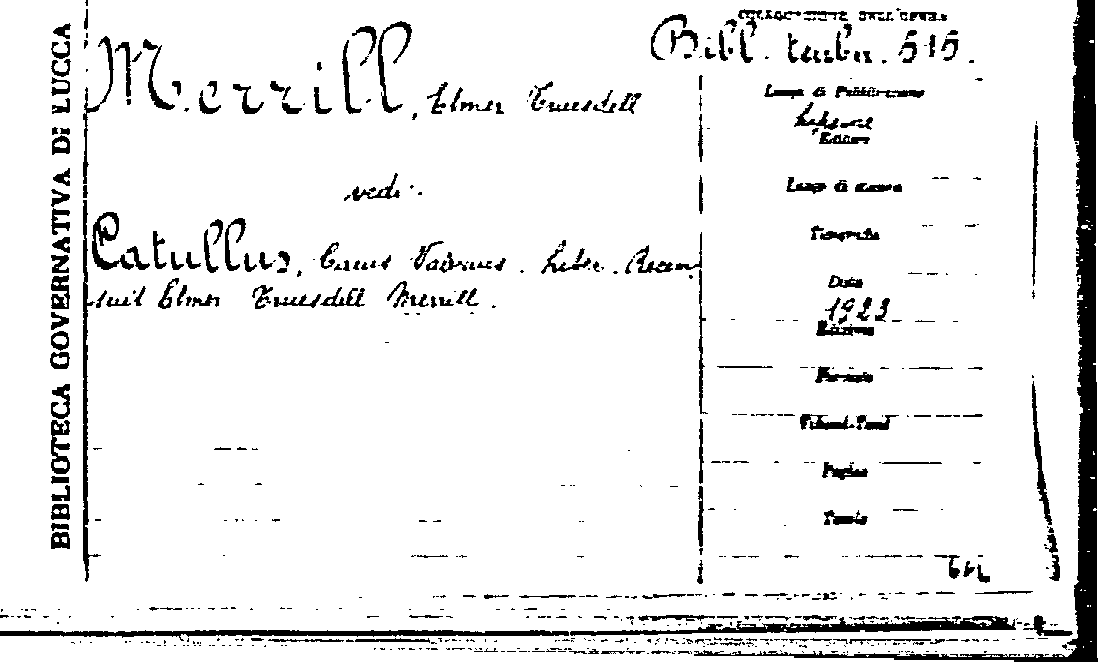 BIBLIOTECA GOVERNATIVA DI LUCCA
COLLOCAZIONE DELL'OPERA
Bibl. teubn. 515.
Merrill, Elmer Truesdell
vedi:
Catullus, Caius Valerius. Liber. Recen
suit Elmer Truesdell Merrill.
Luogo di Pubblicazione
Lipsiae
Editore
Luogo di stampa
Tipografia
Data
1923
Edizione
Formato
Volumi-Tomi
Pagine
Tavole